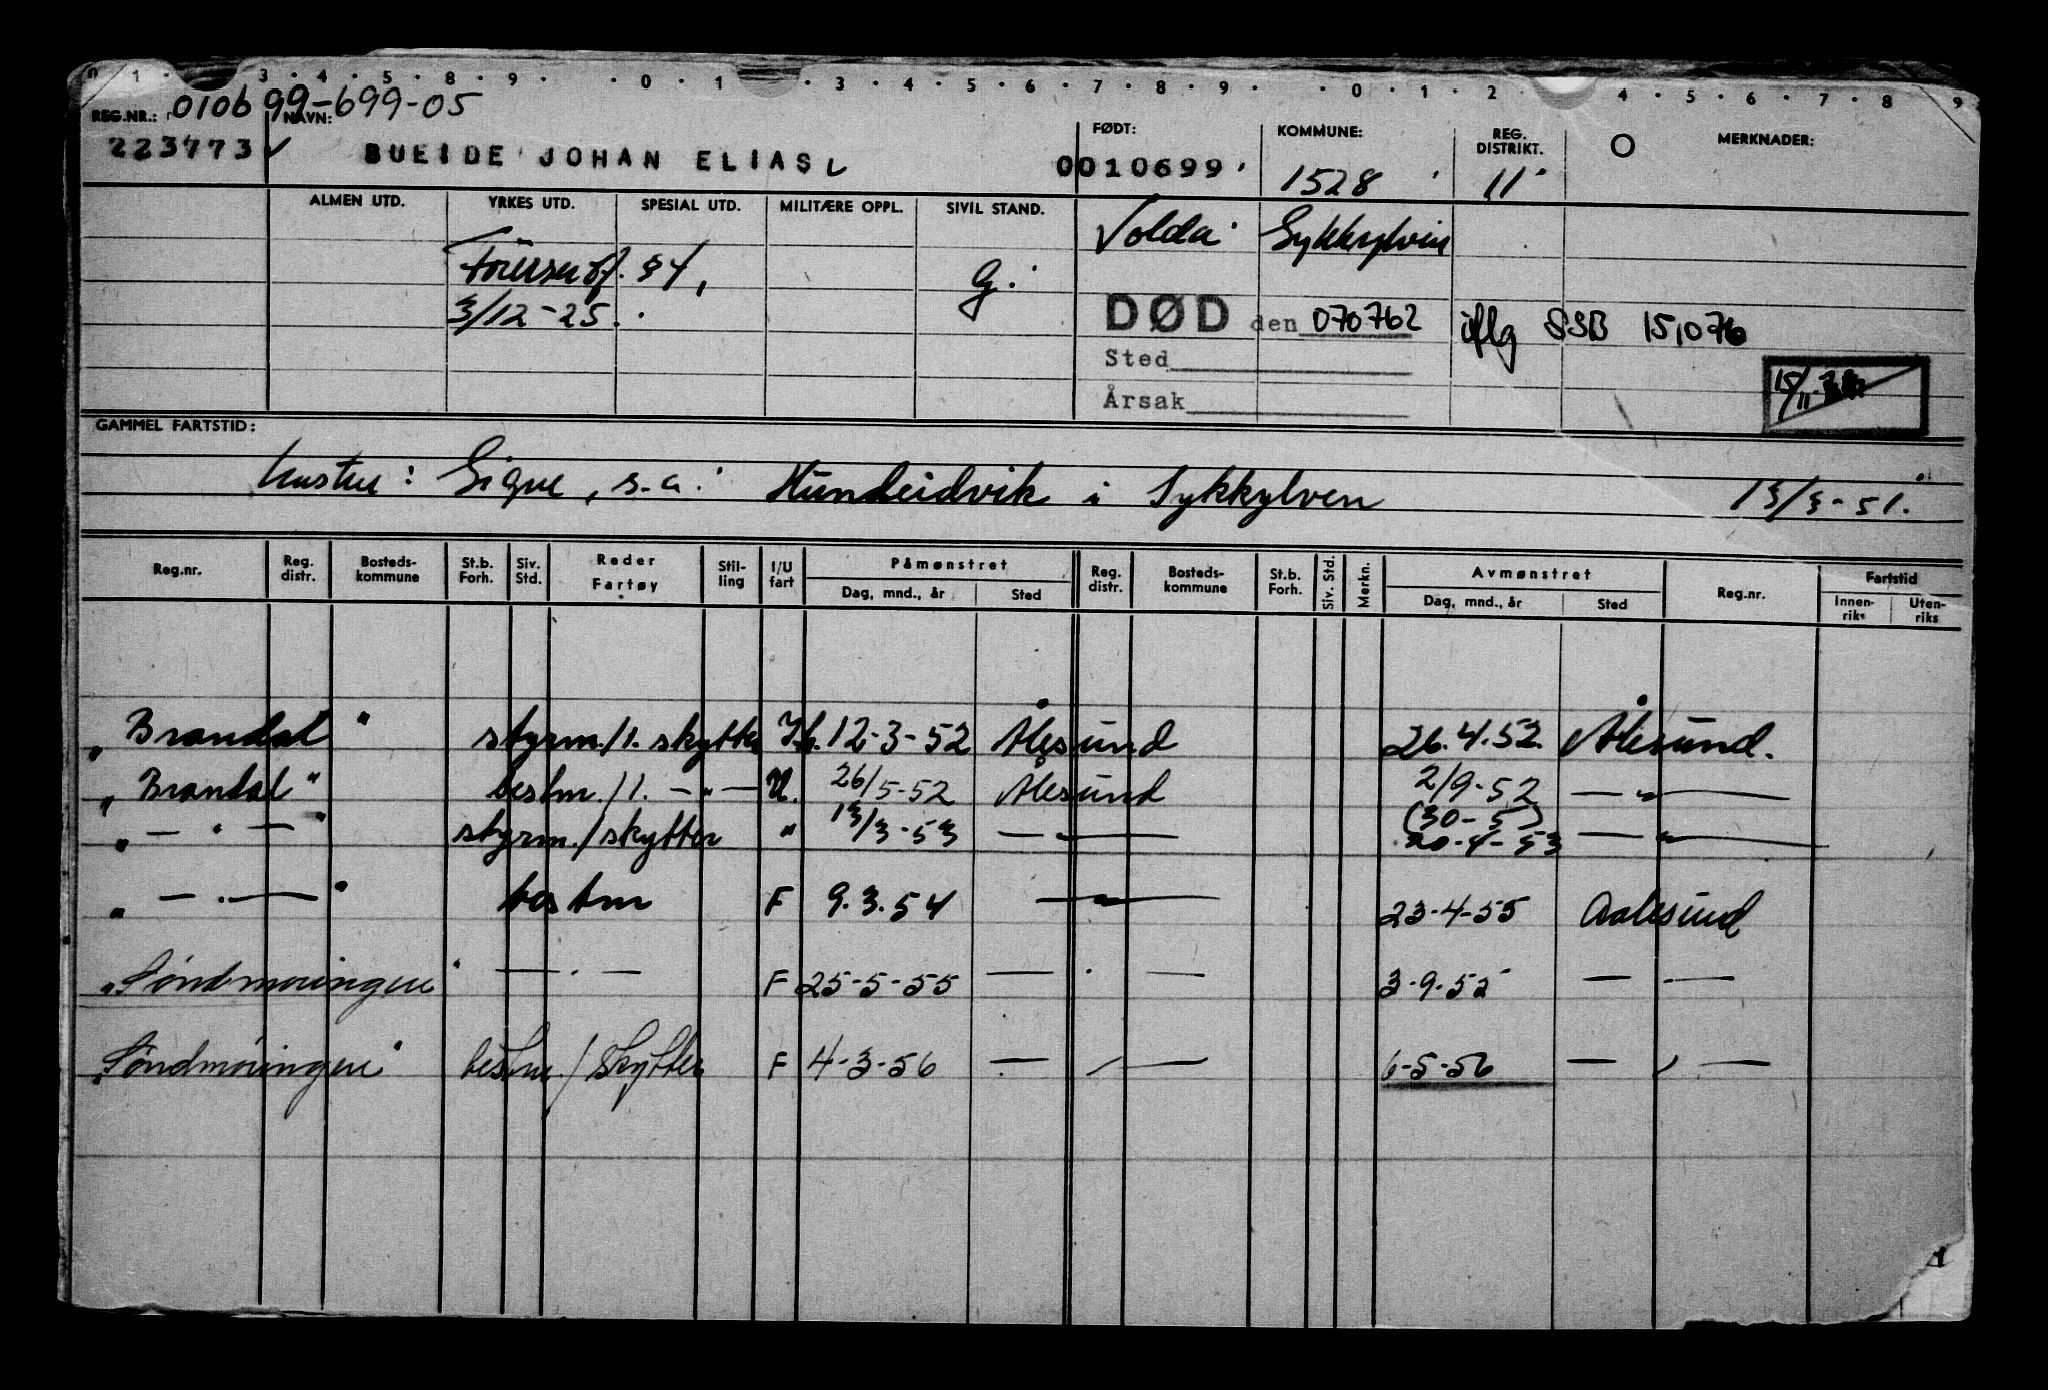 0 1 · 3 · 4 · 5 · 8 · 9 · · 0 · 1 · 3 · 4 · 5 · 6 · 7 · 8 · 9 · · 0 · 1 · 2 · 4 · 5 · 6 · 7 · 8 9
REG.NR.: 010699-699-05 NAVN: FØDT: KOMMUNE: REG. DISTRIKT. O MERKNADER:
223773 BUEIDE JOHAN ELIAS 0010699 1528 11
ALMEN UTD. YRKES UTD. SPESIAL UTD. MILITÆRE OPPL. SIVIL STAND. Volda Sykkylven
§ 4, G.
3/12-25. DØD den 070762 iflg SSB 151076
Sted
Årsak 15/11
GAMMEL FARTSTID:
Hustru: Signe, s.a. Hundeidvik i Sykkylven 13/3-51.
Reg.nr. Reg. distr. Bosteds- kommune St.b. Forh. Siv. Std. Reder Fartøy Stil- ling I/U fart Påmønstret Reg. distr. Bosteds- kommune St.b. Forh. Siv. Std. Merkn. Avmønstret Reg.nr. Fartstid
Dag, mnd., år Sted Dag, mnd., år Sted Innen- riks Uten- riks
"Brandal" styrm./1. skytter 12-3-52 Ålesund 26.4.52. Ålesund.
"Brandal" bestm./1. — " — U. 26/5-52 Ålesund 2/9-52 — " —
" — " — " styrm./skytter " 13/3-53 — " — (30-5) 20-4-53 — " —
" — " — " bestm F 9.3.54 — " — 23-4-55 Aalesund
"Søndmøringen" — " — F 25-5-55 — " — 3-9-55 — " —
"Søndmøringen" bestm./skytter F 4-3-56 — " — 6-5-56 — " —